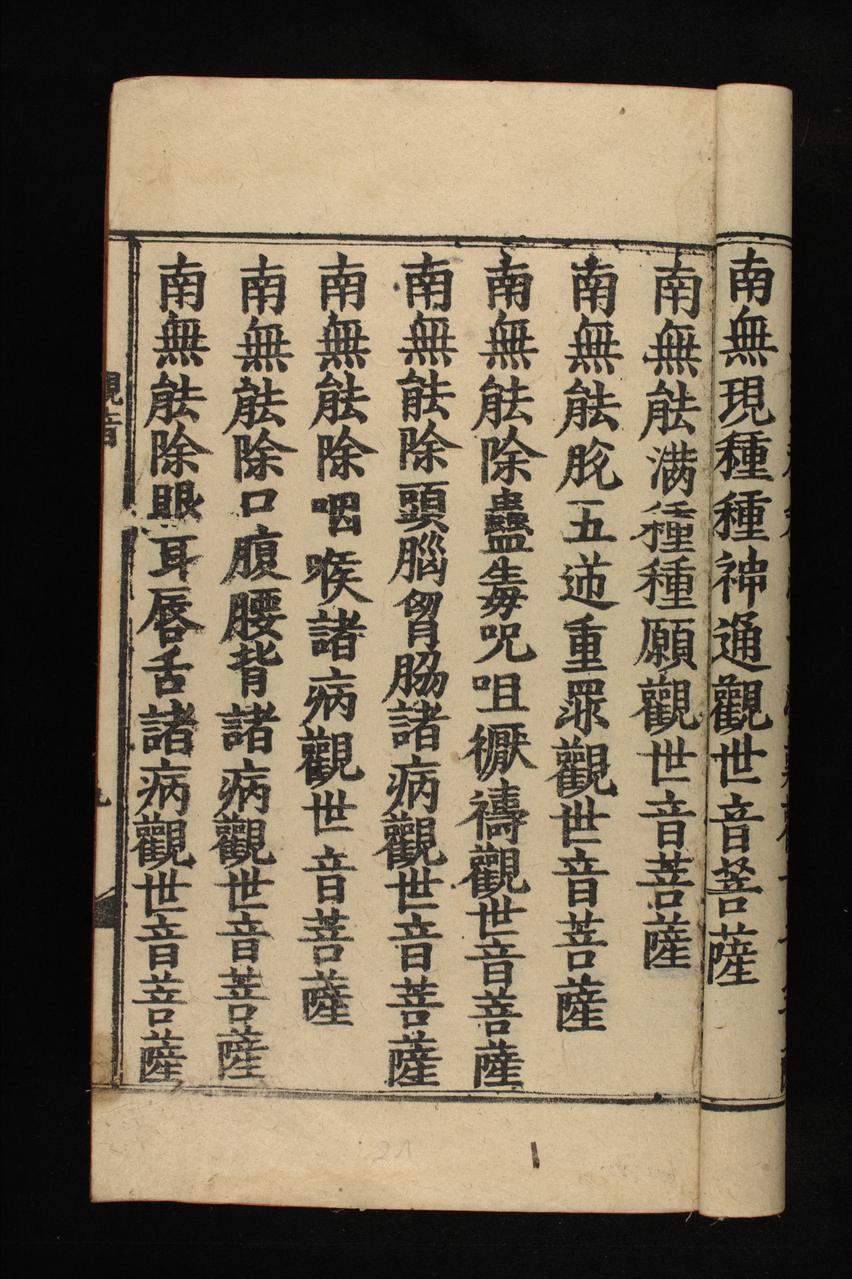 南無現種種神通觀世音菩薩
南無能滿種種願觀世音菩薩
南無能脫五逆重罪觀世音菩薩
南無能除蠱毒咒咀厭禱觀世音菩薩
南無能除頭腦胷脇諸病觀世音菩薩
南無能除咽喉諸病觀世音菩薩
南無能除口腹腰背諸病觀世音菩薩
南無能除眼耳唇舌諸病觀世音菩薩
觀音
九
21